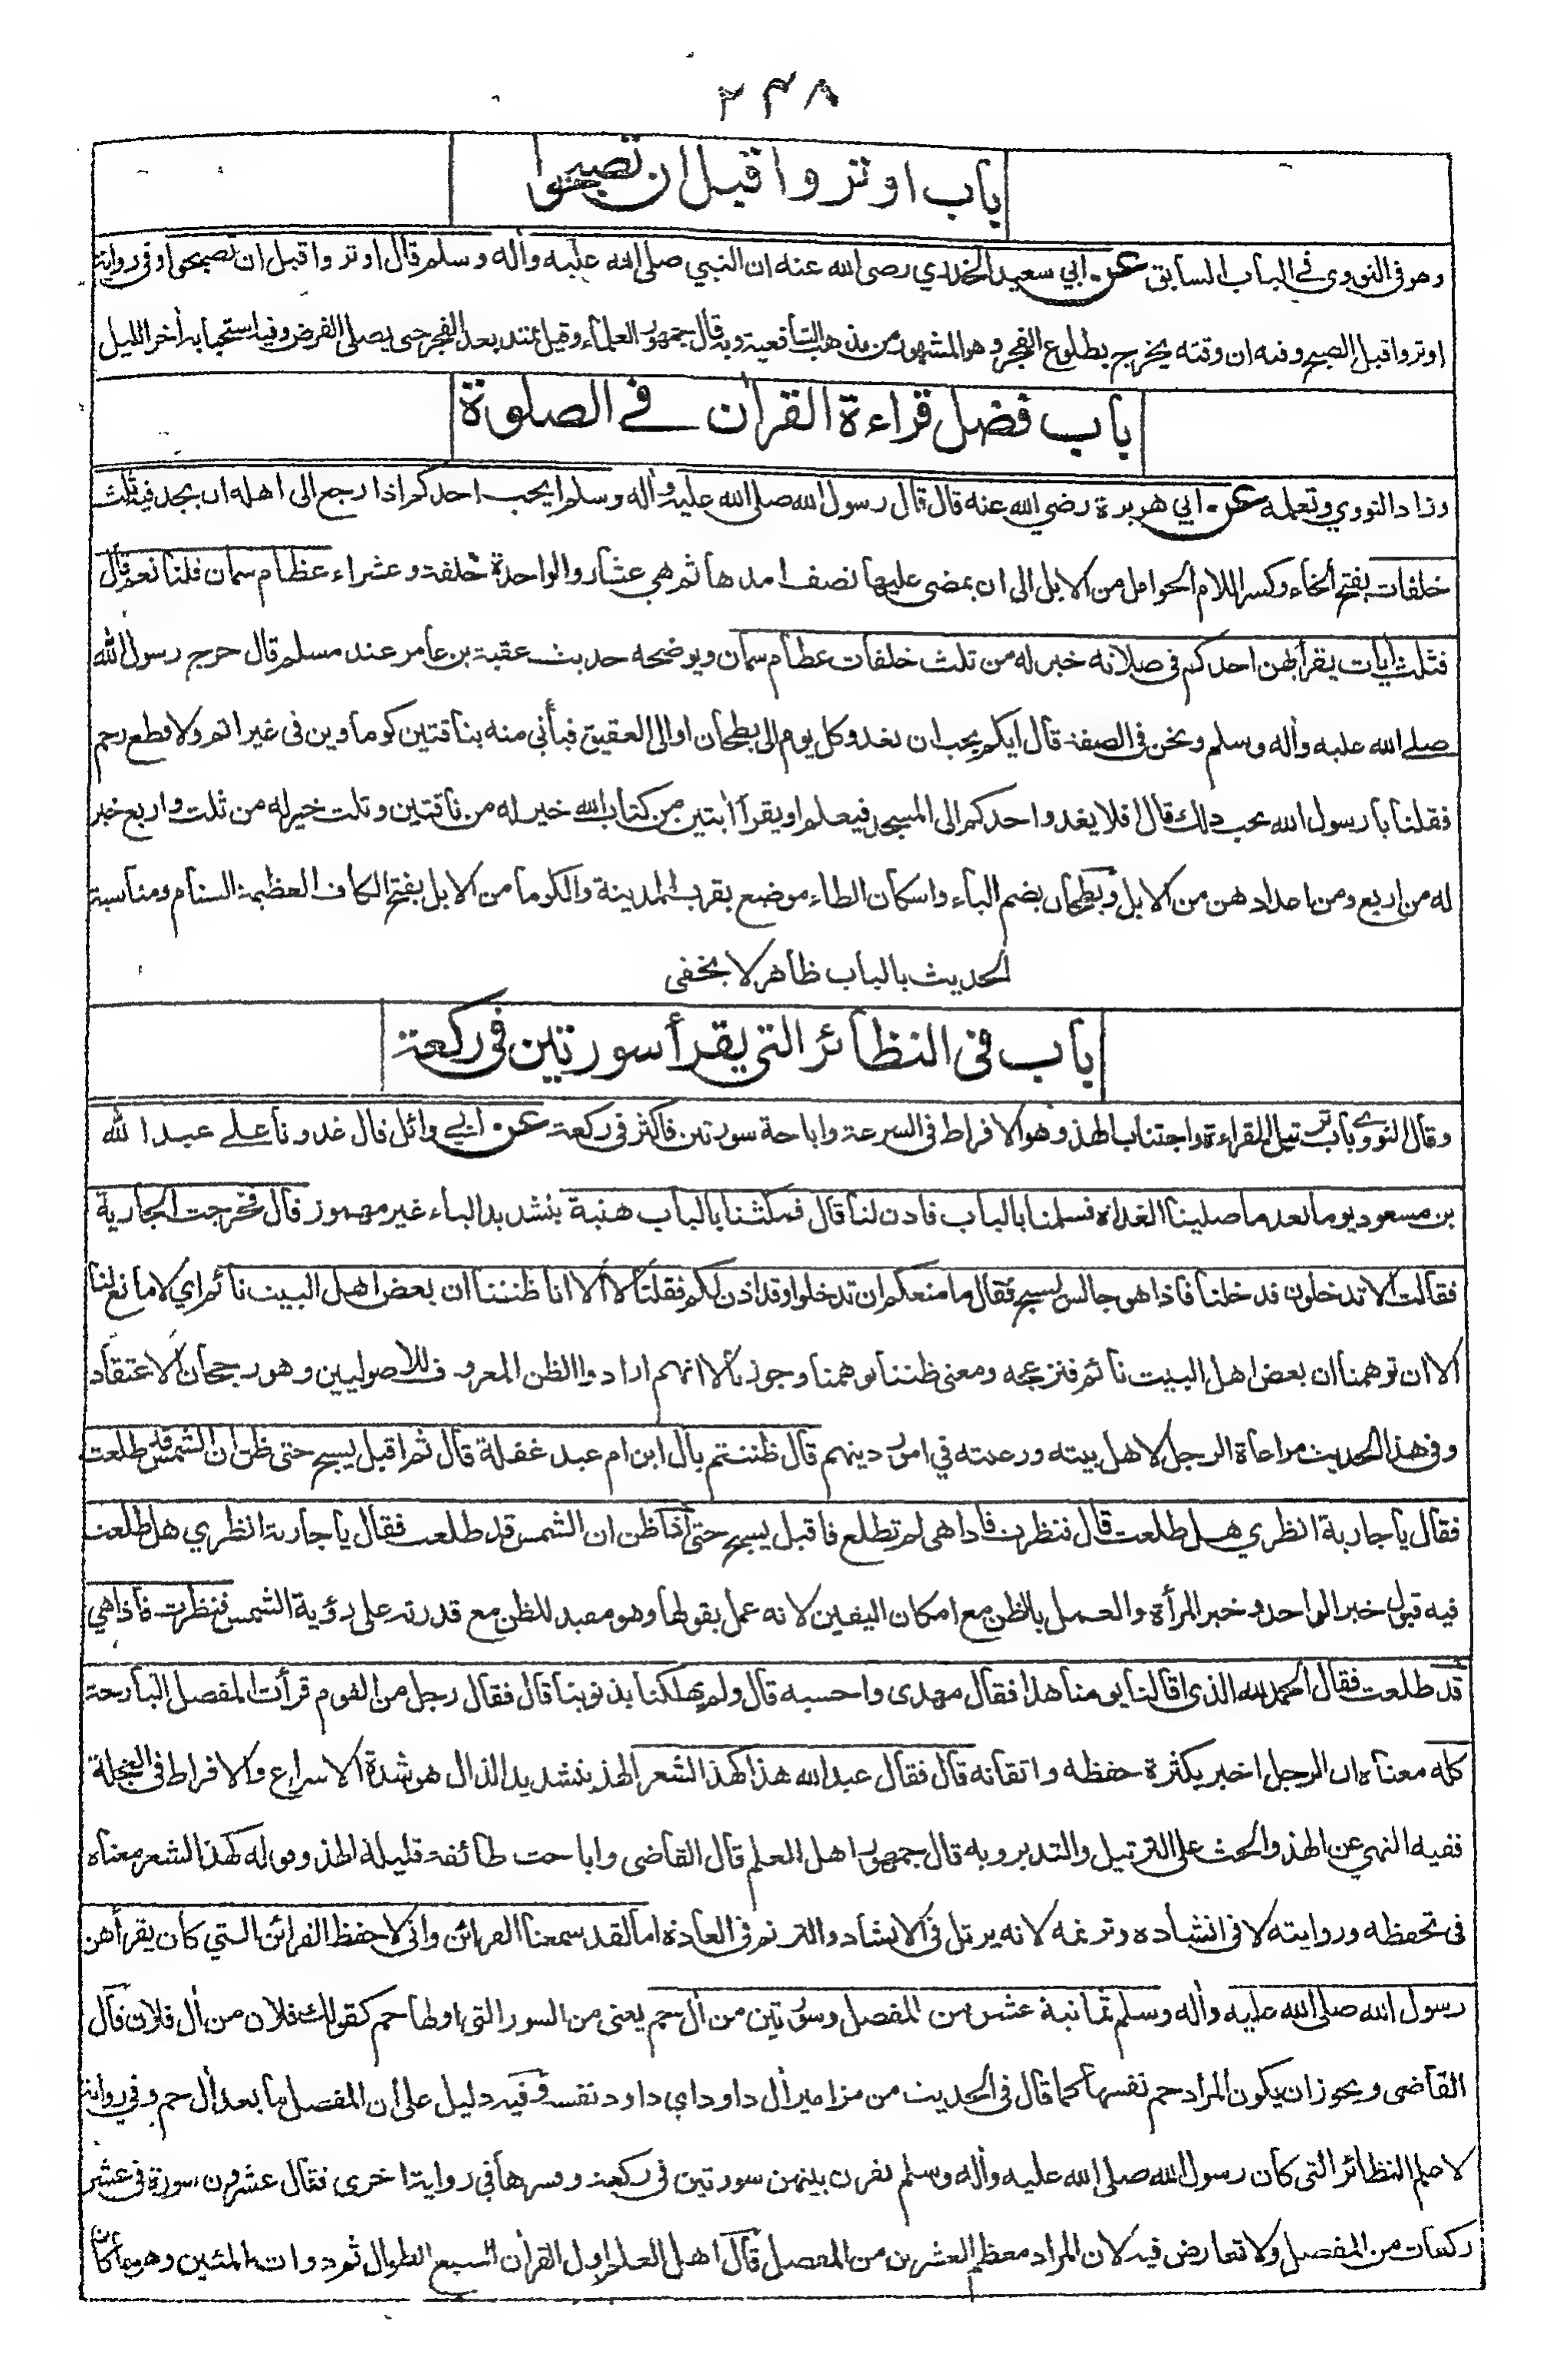 ٢٣٨
باب اوتروا قبل ان تصبحوا
وهو فى النووى في الباب السابق عن ابي سعيد الخدري رضى الله عنه ان النبي صلى الله عليه وأله وسلم قال اوتروا قبل ان تصبحوا وفى رواية
اوتروا قبل الصبح وفيه ان وقته يخرج بطلوع الفجر وهو المشهور من مذهب الشافعية وبه قال جمهور العلماء وقيل يمتد بعد الفجر حتى يصلى الفرض وفيه استحبابه أخر الليل
باب فضل قراءة القرأن في الصلوة
وزاد النووي وتعلمه عن ابي هريرة رضي الله عنه قال قال رسول الله صلى الله عليه وأله وسلم ايحب احدكم اذا رجع الى اهله ان يجد فيه ثلث
خلفات بفتح الخاء وكسر اللام الحوامل من الابل الى ان يمضى عليها نصف امدها ثم هي عشار والواحدة خلفة وعشراء عظام سمان قلنا نعم قال
فثلث أيات يقرأ بهن احدكم فى صلاته خير له من ثلث خلفات عظام سمان ويوضحه حديث عقبة بن عامر عند مسلم قال خرج رسول الله
صلے الله عليه وأله وسلم ونحن فى الصفة قال ايكم يحب ان يغدو كل يوم الى بطحان او الى العقيق فيأتي منه بناقتين كوماوين فى غير اثم ولا قطع رحم
فقلنا يا رسول الله نحب ذلك قال افلا يغدو احدكم الى المسجد فيعلم او يقرأ أيتين من كتاب الله خير له من ناقتين وثلث خير له من ثلث واربع خير
له من اربع ومن اعدادهن من الابل وبطحان بضم الباء واسكان الطاء موضع بقرب المدينة والكوما من الابل بفتح الكاف العظيمة السنام ومناسبة
الحديث بالباب ظاهر لا يخفى
باب فى النظائر التي يقرأ سورتين فى ركعة
وقال النووي باب ترتيل القراءة واجتناب الهذ وهو الافراط فى السرعة واباحة سورتين فاكثر فى ركعة عن ابي وائل قال غدونا على عبد الله
بن مسعود يوما بعد ما صلينا الغداة فسلمنا بالباب فاذن لنا قال فمكثنا بالباب هنية بتشديد الياء غير مهموز قال فخرجت الجارية
فقالت الا تدخلون فدخلنا فاذا هو جالس يسبح فقال ما منعكم ان تدخلوا وقد اذن لكم فقلنا لا الا انا ظننا ان بعض اهل البيت نائم اي لا مانع لنا
الا ان توهمنا ان بعض اهل البيت نائم فنزعجه ومعنى ظننا توهمنا وجوزنا لا انهم ارادوا الظن المعروف للاصوليين وهو رجحان الاعتقاد
وفى هذا الحديث مراعاة الرجل لاهل بيته ورعيته في امور دينهم قال ظننتم بأل ابن ام عبد غفلة قال ثم اقبل يسبح حتى ظن ان الشمس قد طلعت
فقال يا جارية انظري هل طلعت قال فنظرت فاذا هى لم تطلع فاقبل يسبح حتى اذا ظن ان الشمس قد طلعت فقال يا جارية انظري هل طلعت
فيه قبول خبر الواحد وخبر المرأة والعمل بالظن مع امكان اليقين لانه عمل بقولها وهو مفيد للظن مع قدرته على رؤية الشمس فنظرت فاذا هي
قد طلعت فقال الحمد لله الذي اقالنا يومنا هذا فقال مهدى واحسبه قال ولم يهلكنا بذنوبنا قال فقال رجل من القوم قرأت المفصل البارحة
كله معناه ان الرجل اخبر بكثرة حفظه واتقانه قال فقال عبد الله هذا كهذ الشعر الهذ بتشديد الذال هو شدة الاسراع والافراط فى العجلة
ففيه النهي عن الهذ والحث على الترتيل والتدبر وبه قال جمهور اهل العلم قال القاضى واباحت طائفة قليلة الهذ وقوله كهذ الشعر معناه
فى تحفظه وروايته لا فى انشاده وترنمه لانه يرتل فى الانشاد والترنم فى العادة اما لقد سمعنا القرائن وانى لاحفظ القرائن التي كان يقرأهن
رسول الله صلى الله عليه وأله وسلم ثمانية عشر من المفصل وسورتين من أل حم يعنى من السور التى اولها حم كقولك فلان من أل فلان قال
القاضى ويجوز ان يكون المراد حم نفسها كما قال فى الحديث من مزامير أل داود اي داود نفسه وفيه دليل على ان المفصل ما بعد أل حم وفي رواية
لاعلم النظائر التى كان رسول الله صلى الله عليه وأله وسلم يقرن بينهن سورتين فى ركعة وفسرها فى رواية اخرى فقال عشرون سورة فى عشر
ركعات من المفصل ولا تعارض فيه لان المراد معظم العشرين من المفصل قال اهل العلم اول القرأن السبع الطوال ثم ذوات المئين وهو ما كان